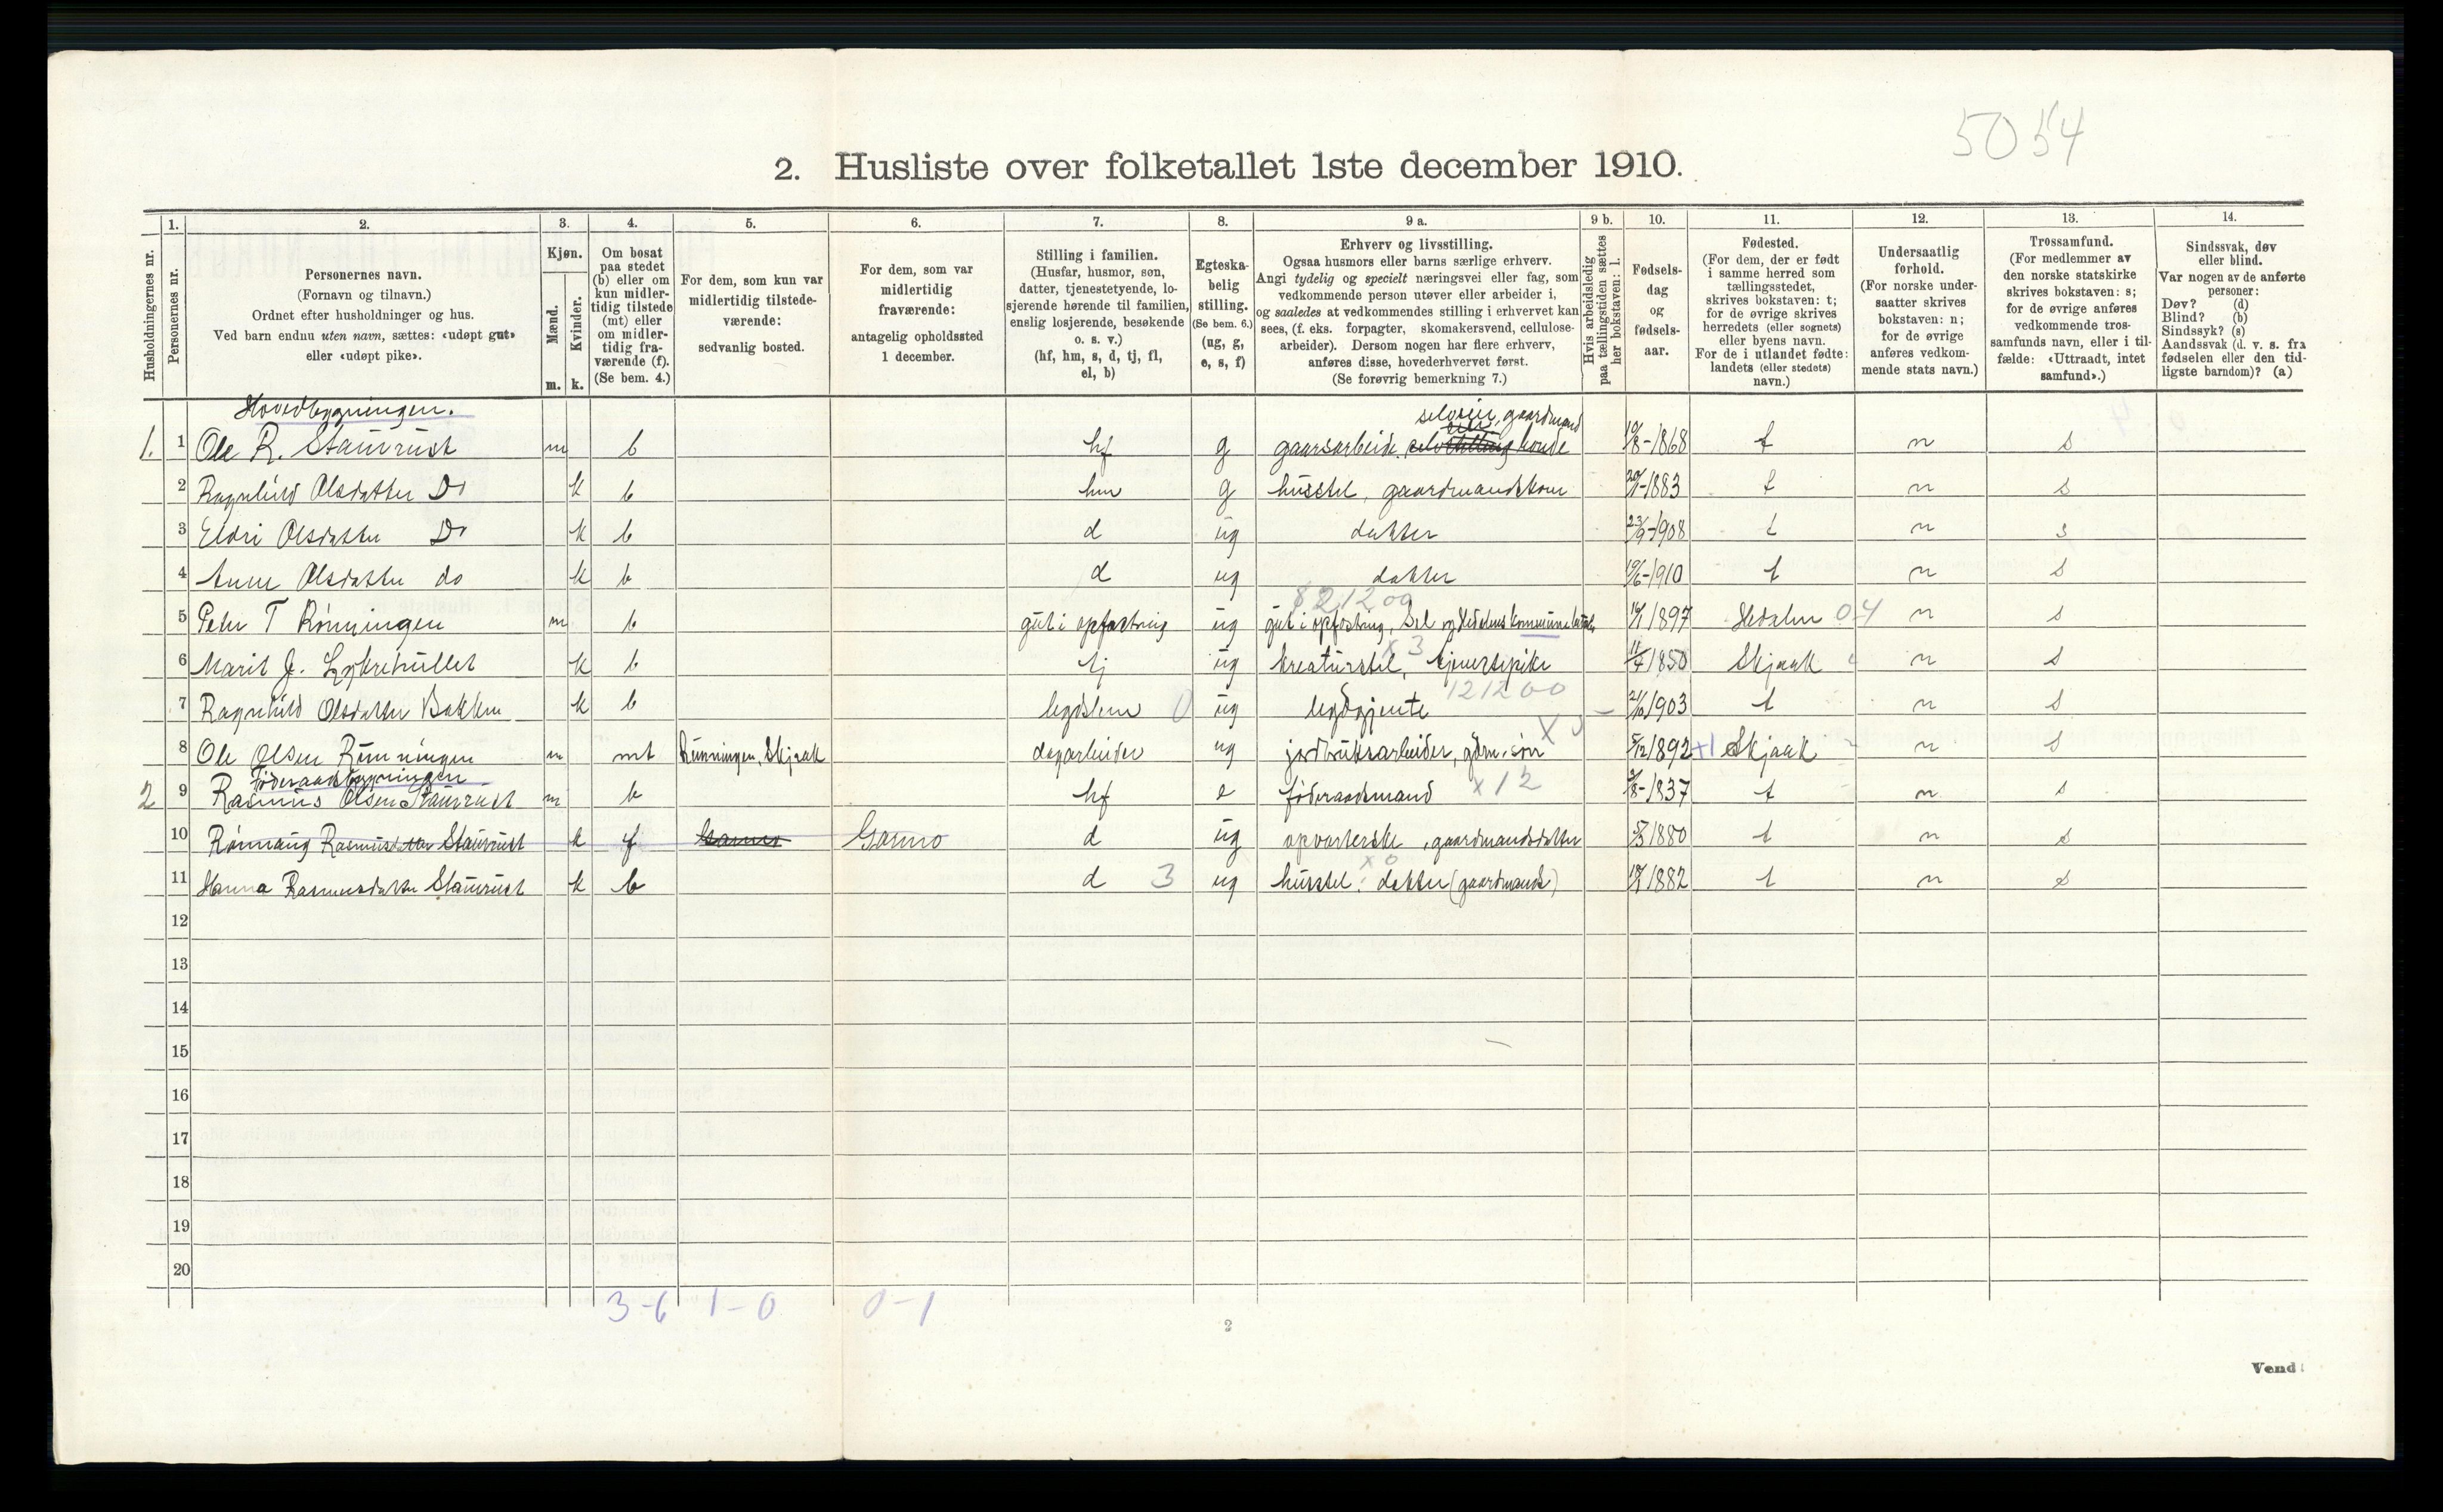 5054
2. Husliste over folketallet 1ste december 1910.
1. 2. 3. 4. 5. 6. 7. 8. 9 a. 9 b. 10. 11. 12. 13. 14.
Husholdningernes nr.
Personernes nr.
Personernes navn.
(Fornavn og tilnavn.)
Ordnet efter husholdninger og hus.
Ved barn endnu uten navn, sættes: «udøpt gut»
eller «udøpt pike».
Kjøn.
Mænd.
Kvinder.
m. k.
Om bosat
paa stedet
(b) eller om
kun midler-
tidig tilstede
(mt) eller
om midler-
tidig fra-
værende (f).
(Se bem. 4.)
For dem, som kun var
midlertidig tilstede-
værende:
sedvanlig bosted.
For dem, som var
midlertidig
fraværende:
antagelig opholdssted
1 december.
Stilling i familien.
(Husfar, husmor, søn,
datter, tjenestetyende, lo-
sjerende hørende til familien,
enslig losjerende, besøkende
o. s. v.)
(hf, hm, s, d, tj, fl,
el, b)
Egteska-
belig
stilling.
(Se bem. 6.)
(ug, g,
e, s, f)
Erhverv og livsstilling.
Ogsaa husmors eller barns særlige erhverv.
Angi tydelig og specielt næringsvei eller fag, som
vedkommende person utøver eller arbeider i,
og saaledes at vedkommendes stilling i erhvervet kan
sees, (f. eks. forpagter, skomakersvend, cellulose-
arbeider). Dersom nogen har flere erhverv,
anføres disse, hovederhvervet først.
(Se forøvrig bemerkning 7.)
Hvis arbeidsledig
paa tællingstiden sættes
her bokstaven: l.
Fødsels-
dag
og
fødsels-
aar.
Fødested.
(For dem, der er født
i samme herred som
tællingsstedet,
skrives bokstaven: t;
for de øvrige skrives
herredets (eller sognets)
eller byens navn.
For de i utlandet fødte:
landets (eller stedets)
navn.)
Undersaatlig
forhold.
(For norske under-
saatter skrives
bokstaven: n;
for de øvrige
anføres vedkom-
mende stats navn.)
Trossamfund.
(For medlemmer av
den norske statskirke
skrives bokstaven: s;
for de øvrige anføres
vedkommende tros-
samfunds navn, eller i til-
fælde: «Uttraadt, intet
samfund».)
Sindssvak, døv
eller blind.
Var nogen av de anførte
personer:
Døv? (d)
Blind? (b)
Sindssyk? (s)
Aandssvak (d. v. s. fra
fødselen eller den tid-
ligste barndom)? (a)
Hovedbygningen.
selveier, gaardmand
1. 1 Ole R. Staurust m b hf g gaarsarbeide 19/8-1868 t n s
2 Ragnhild Olsdatter Do k b hm g husstel, gaardmandskone 1883 t n s
3 Eldri Olsdatter Do k b d ug datter 23/9-1908 t n s
4 Anne Olsdatter do k b d ug datter 19/6-1910 t n s
821200
5 Peder T Rønningen m b gut i opfostring ug gut i opfostring, Sel og Hedalens kommune 1897 Hedalen 04 n s
x 3
6 Marit J. k b tj ug kreaturstel, tjenestpike 11/4 1850 Skjaak n s
121200
7 Ragnhild Olsdatter Bakken k b legdslem 0 ug legdsjente 21/10 1903 t n s
8 Ole Olsen Rønningen m mt Rønningen, Skjaak dagarbeider ug jordbruksarbeider, gdm. søn 5/12 1892 +1 Skjaak n s
Føderaadsbygningen
2 9 Rasmus Olsen Staurust m b hf e føderaadsmand x 12 1837 t n s
10 Rønnaug Rasmusdatter Staurust k f Garmo Garmo d ug opvarterske, gaardmandsdatter 1880 t n s
x 0
11 Hanna Rasmusdatter Staurust k b d 3 ug husstel, datter (gaardmands) 1882 t n s
12
13
14
15
16
17
18
19
20
3-6 1-0 0-1
2
Vend!